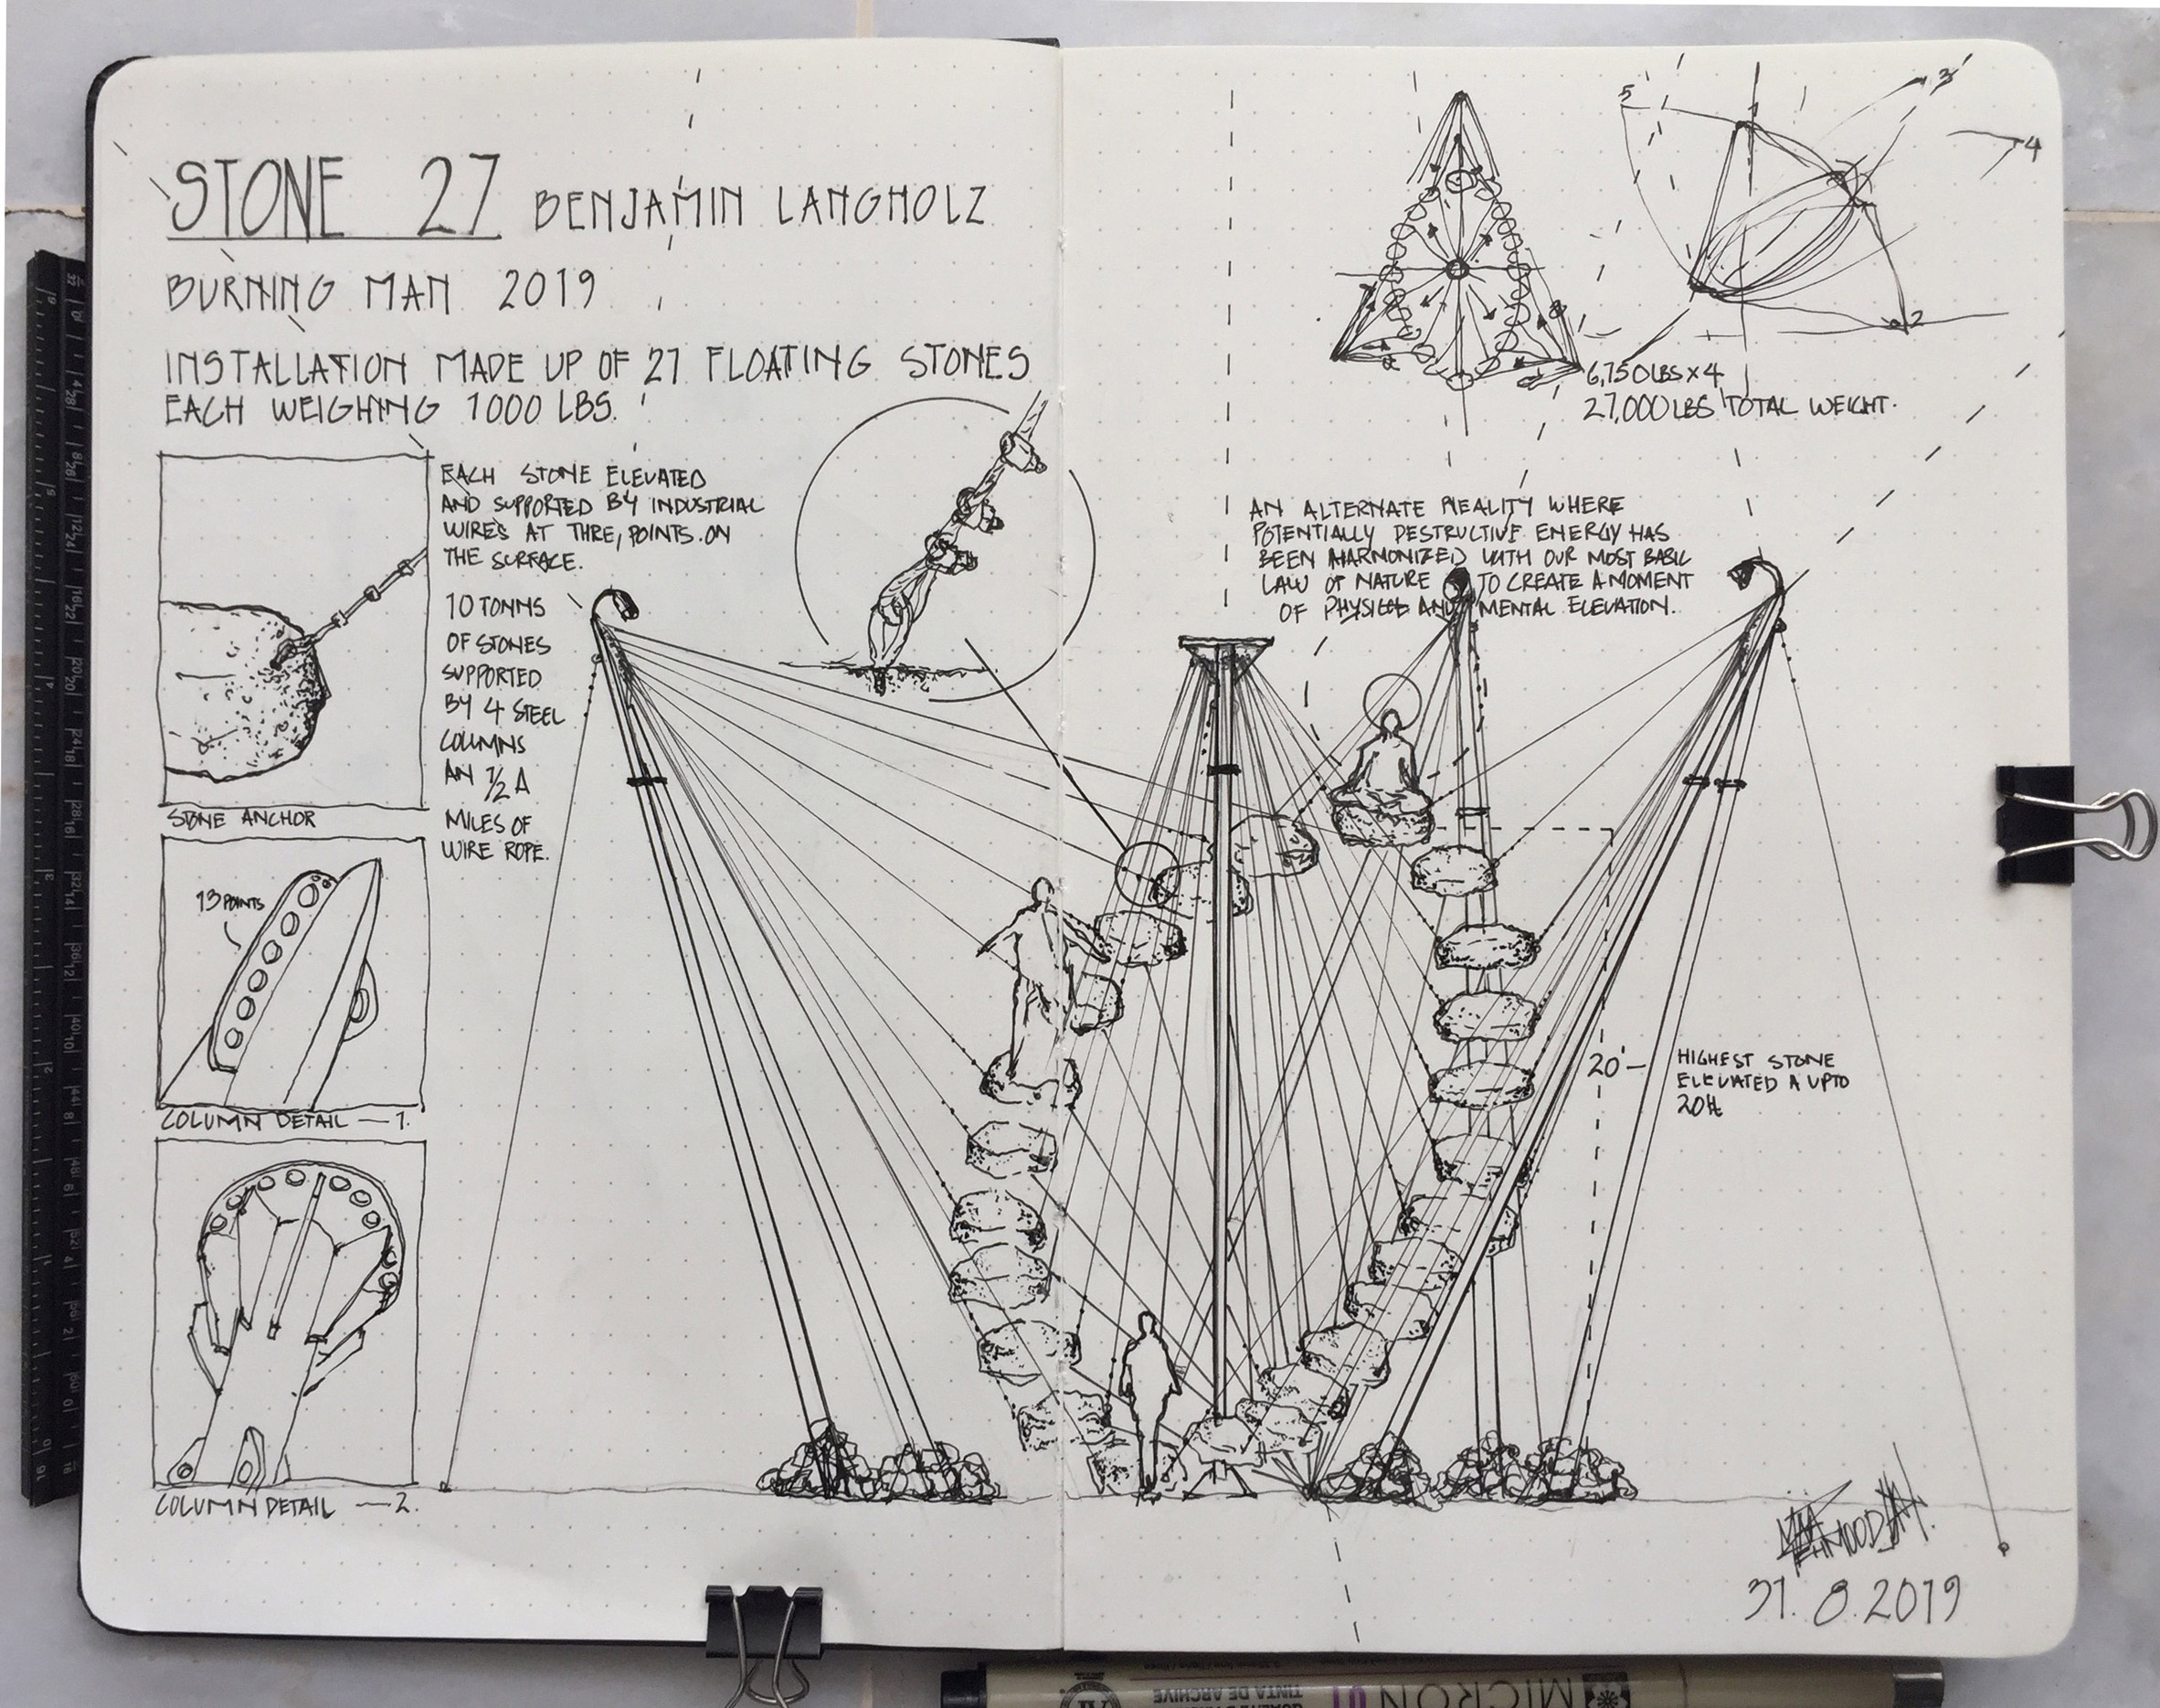 STONE 27 BENJAMIN LANGHOLZ
BURNING MAN 2019
INSTALLATION MADE UP OF 27 FLOATING STONES
EACH WEIGHING 1000 LBS.
EACH STONE ELEVATED
AND SUPPORTED BY INDUSTRIAL
WIRES AT THRE, POINTS ON
THE SURFACE.
10 TONNS
OF STONES
SUPPORTED
BY 4 STEEL
COLUMNS
AN 1/2 A
MILES OF
WIRE ROPE.
STONE ANCHOR
13 POINTS
COLUMN DETAIL — 1.
COLUMN DETAIL — 2.
5
1
3
4
2
6,750LBS x 4
27,000LBS TOTAL WEIGHT.
AN ALTERNATE REALITY WHERE
POTENTIALLY DESTRUCTIVE ENERGY HAS
BEEN HARMONIZED WITH OUR MOST BASIC
LAW OF NATURE TO CREATE A MOMENT
OF PHYSICAL AND MENTAL ELEVATION.
20'
HIGHEST STONE
ELEVATED A UPTO
20ft
31.8.2019
MICRON 01
TINTA DE ARCHIVE